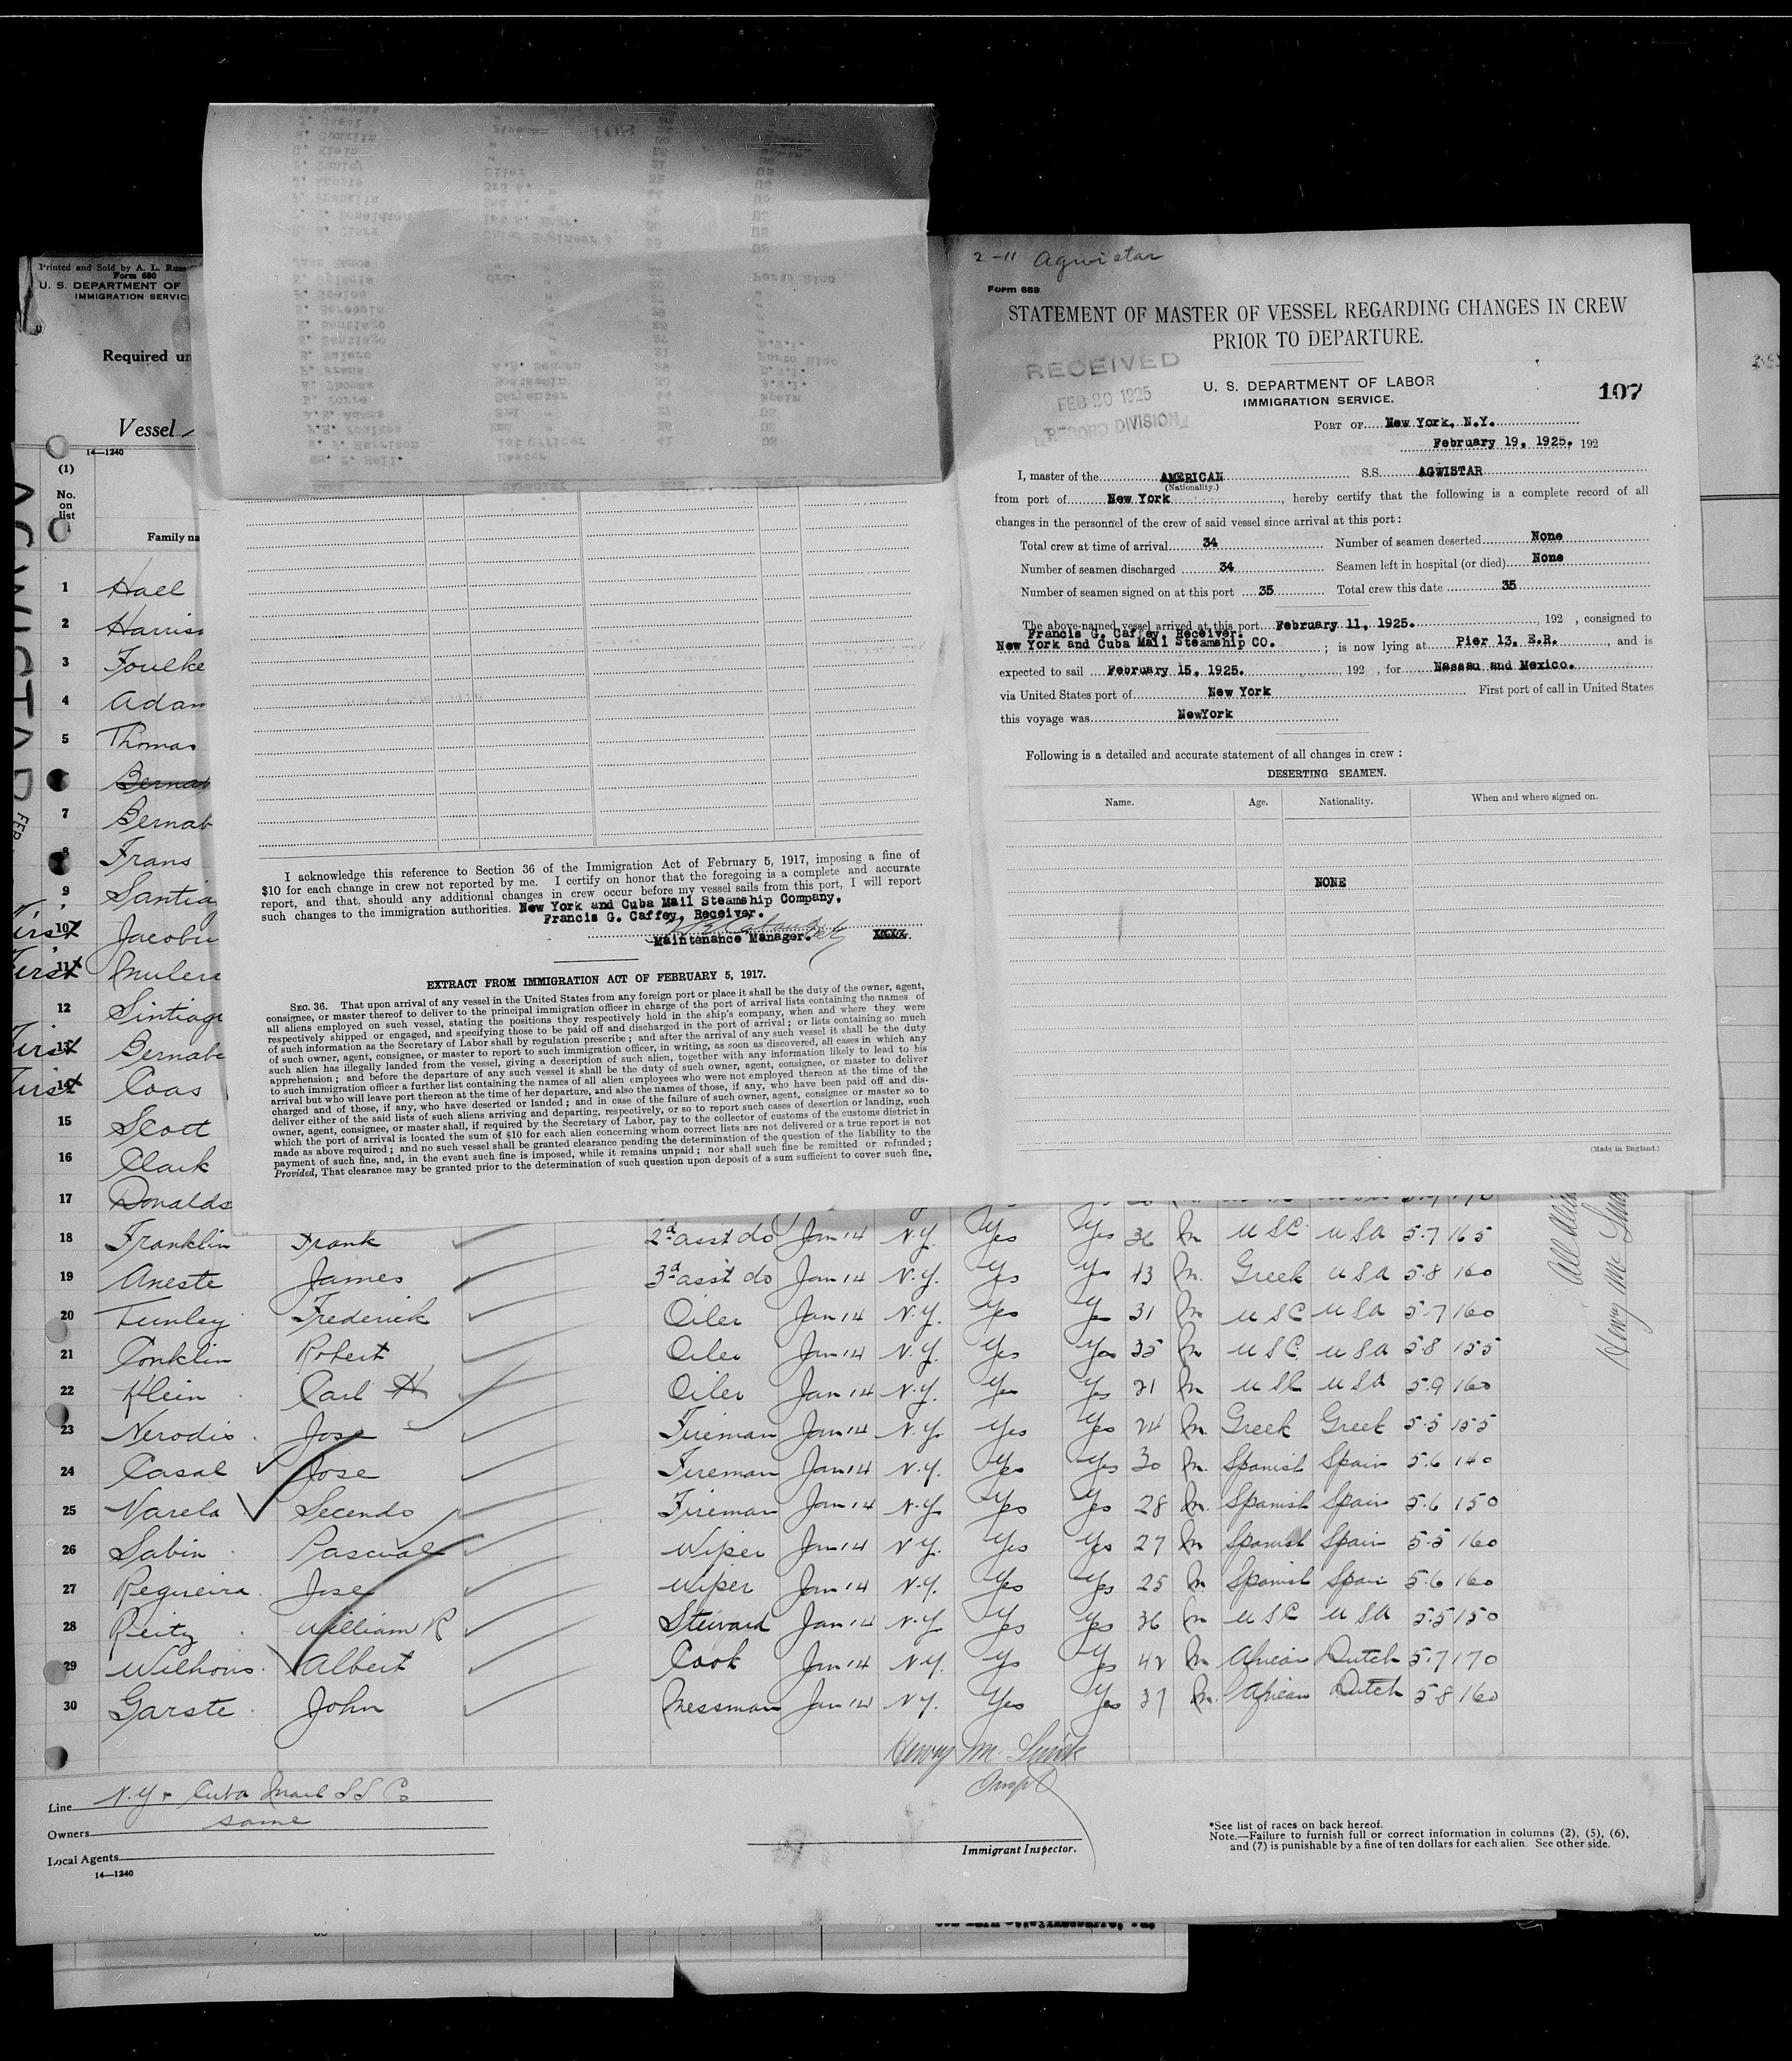 2-11 Agwistar
Form 689
STATEMENT OF MASTER OF VESSEL REGARDING CHANGES IN CREW
PRIOR TO DEPARTURE.
RECEIVED
FEB 20 1925
RECORD DIVISION
U. S. DEPARTMENT OF LABOR
IMMIGRATION SERVICE.
107
PORT OF New York, N.Y.
February 19, 1925, 192
I, master of the AMERICAN S.S. AGWISTAR
(Nationality.)
from port of New York, hereby certify that the following is a complete record of all
changes in the personnel of the crew of said vessel since arrival at this port:
Total crew at time of arrival 34 Number of seamen deserted None
Number of seamen discharged 34 Seamen left in hospital (or died) None
Number of seamen signed on at this port 35 Total crew this date 35
The above-named vessel arrived at this port February 11, 1925. , 192 , consigned to
Francis G. Caffey, Receiver.
New York and Cuba Mail Steamship CO. ; is now lying at Pier 13, E.R. , and is
expected to sail February 15, 1925. , 192 , for Nassau and Mexico.
via United States port of New York First port of call in United States
this voyage was NewYork
Following is a detailed and accurate statement of all changes in crew :
DESERTING SEAMEN.
Name. Age. Nationality. When and where signed on.
NONE
(Made in England.)
I acknowledge this reference to Section 36 of the Immigration Act of February 5, 1917, imposing a fine of
$10 for each change in crew not reported by me. I certify on honor that the foregoing is a complete and accurate
report, and that, should any additional changes in crew occur before my vessel sails from this port, I will report
such changes to the immigration authorities. New York and Cuba Mail Steamship Company,
Francis G. Caffey, Receiver.
Maintenance Manager.
EXTRACT FROM IMMIGRATION ACT OF FEBRUARY 5, 1917.
SEC. 36. That upon arrival of any vessel in the United States from any foreign port or place it shall be the duty of the owner, agent,
consignee, or master thereof to deliver to the principal immigration officer in charge of the port of arrival lists containing the names of
all aliens employed on such vessel, stating the positions they respectively hold in the ship's company, when and where they were
respectively shipped or engaged, and specifying those to be paid off and discharged in the port of arrival; or lists containing so much
of such information as the Secretary of Labor shall by regulation prescribe; and after the arrival of any such vessel it shall be the duty
of such owner, agent, consignee, or master to report to such immigration officer, in writing, as soon as discovered, all cases in which any
such alien has illegally landed from the vessel, giving a description of such alien, together with any information likely to lead to his
apprehension; and before the departure of any such vessel it shall be the duty of such owner, agent, consignee, or master to deliver
to such immigration officer a further list containing the names of all alien employees who were not employed thereon at the time of the
arrival but who will leave port thereon at the time of her departure, and also the names of those, if any, who have been paid off and dis-
charged and of those, if any, who have deserted or landed; and in case of the failure of such owner, agent, consignee or master so to
deliver either of the said lists of such aliens arriving and departing, respectively, or so to report such cases of desertion or landing, such
owner, agent, consignee, or master shall, if required by the Secretary of Labor, pay to the collector of customs of the customs district in
which the port of arrival is located the sum of $10 for each alien concerning whom correct lists are not delivered or a true report is not
made as above required; and no such vessel shall be granted clearance pending the determination of the question of the liability to the
payment of such fine, and, in the event such fine is imposed, while it remains unpaid; nor shall such fine be remitted or refunded;
Provided, That clearance may be granted prior to the determination of such question upon deposit of a sum sufficient to cover such fine.
Printed and Sold by A. L. Russ
Form 680
U. S. DEPARTMENT OF
IMMIGRATION SERVIC
Required un
Vessel
14—1240
(1)
No. on list
Family na
1 Hall
2 Harris
3 Foulke
4 Adam
5 Thomas
Bernab
7 Bernab
8 Frans
9 Santia
10 Jacobu
11 Mulera
12 Sintiago
13 Bernabe
14 Coas
15 Scott
16 Clark
17 Donalds
18 Franklin Frank 2d asst do Jan 14 N.Y. Yes Yes 36 M USC USA 5.7 165
19 Aneste James 3d asst do Jan 14 N.Y. Yes Yes 13 M. Greek USA 5.8 160
20 Tunley Frederick Oiler Jan 14 N.Y. Yes Yes 31 M USC USA 5.7 160
21 Conklin Robert Oiler Jan 14 N.Y. Yes Yes 35 M USC USA 5.8 155
22 Klein Carl H Oiler Jan 14 N.Y. Yes Yes 21 M USC USA 5.9 160
23 Nerodis Jose Fireman Jan 14 N.Y. Yes Yes 24 M. Greek Greek 5.5 155
24 Casal Jose Fireman Jan 14 N.Y. Yes Yes 30 M. Spanish Spain 5.6 140
25 Varela Secendo Fireman Jan 14 N.Y. Yes Yes 28 M. Spanish Spain 5.6 150
26 Sabin Pascual Wiper Jan 14 N.Y. Yes Yes 27 M Spanish Spain 5.5 160
27 Regueira Jose Wiper Jan 14 N.Y. Yes Yes 25 M Spanish Spain 5.6 160
28 Reitz William R Steward Jan 14 N.Y. Yes Yes 36 M USC USA 5.5 150
29 Wilhons Albert Cook Jan 14 N.Y. Yes Yes 42 M African Dutch 5.7 170
30 Garste John Messman Jan 14 N.Y. Yes Yes 37 M. African Dutch 5.8 160
Henry M.
Line N.Y & Cuba Mail SS Co
Owners same
Local Agents
14—1240
Immigrant Inspector.
*See list of races on back hereof.
Note.—Failure to furnish full or correct information in columns (2), (5), (6),
and (7) is punishable by a fine of ten dollars for each alien. See other side.